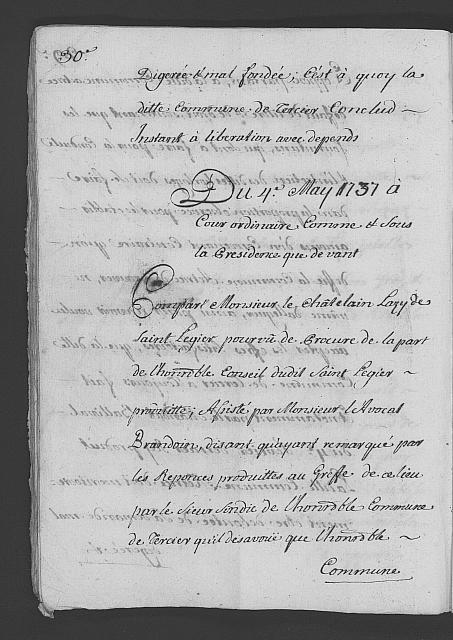 30.
Digerée & mal fondée; C'est à quoy la
ditte Commune de Tercier Conclud ~
Instant à liberation avec depends
Du 4.e May 1737 à
Cour ordinaire Comme & sous
la Presidence que devant
Compart Monsieur le Châtelain Lary de
Saint Legier pourvû de Procure de la part
de l'honorble Conseil dudit Saint Legier ~
produitte; Assisté par Monsieur l'Avocat
Brandoin, disant qu'ayant remarqué par
les Reponces produittes au Greffe de ce lieu
par le Sieur Sindic de l'honorble Commune
de Tercier qu'il desavoüe que l'honorble ~
Commune